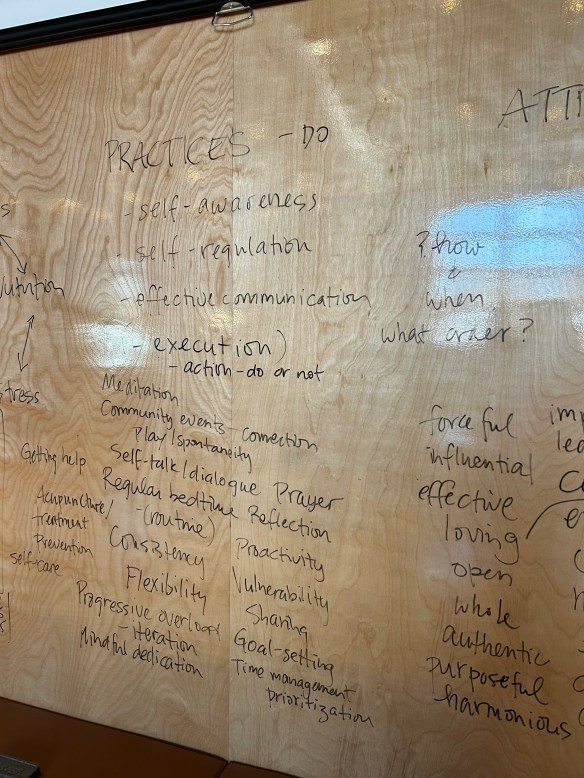 PRACTICES - DO
- self-awareness
- self-regulation
- effective communication
- execution)
- action-do or not
Meditation
Community events - connection
Play/spontaneity
Self-talk/dialogue Prayer
Regular bedtime Reflection
- (routine)
Consistency
Flexibility
Progressive overload
- iteration
Mindful dedication
Getting help
Acupuncture/
treatment
Prevention
self-care
Proactivity
Vulnerability
Sharing
Goal-setting
Time management
prioritization
stress
ATTI
? how
&
when
what order?
forceful
influential
effective
loving
open
whole
authentic
purposeful
harmonious
imp
lea